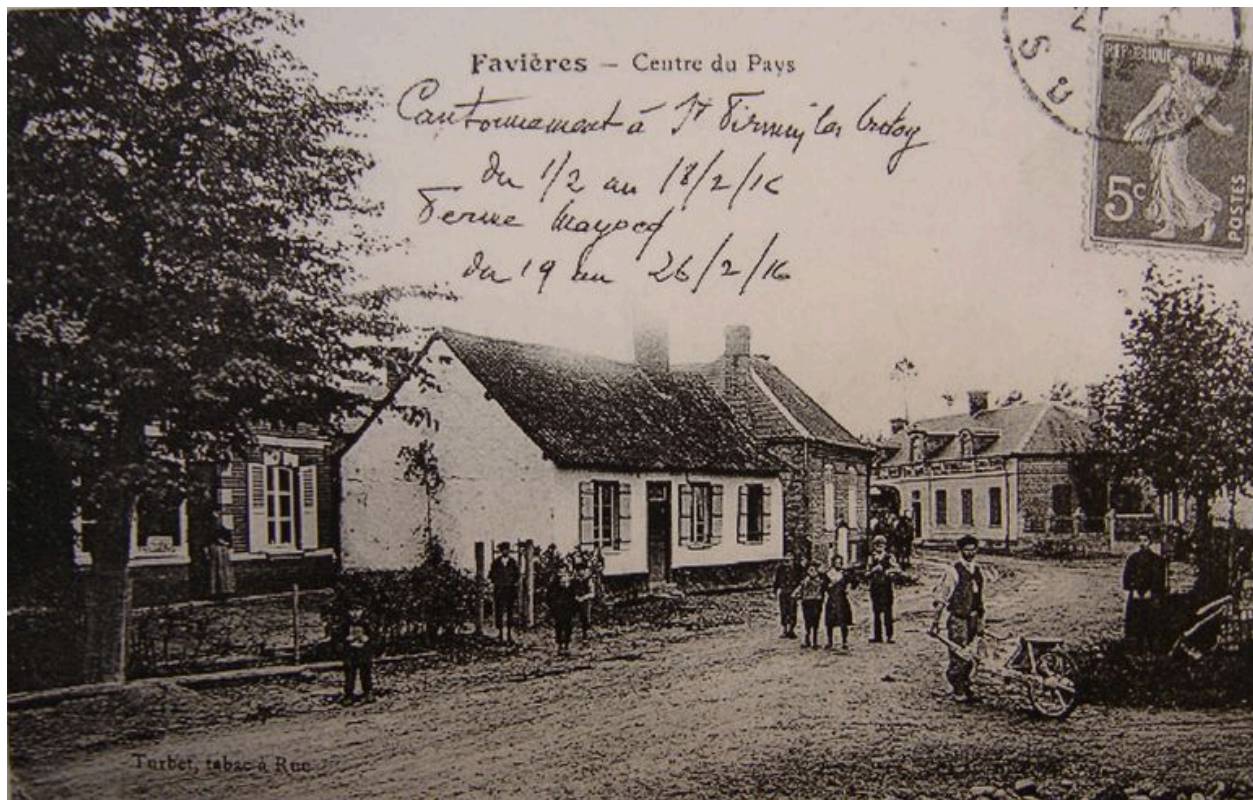 Favières — Centre du Pays
Cantonnement à St Firmin les Crotoy
du 1/2 au 18/2/16
Ferme Mayocq
du 19 au 26/2/16
RÉPUBLIQUE FRANÇAISE
5c
POSTES
Turbet, tabac à Rue